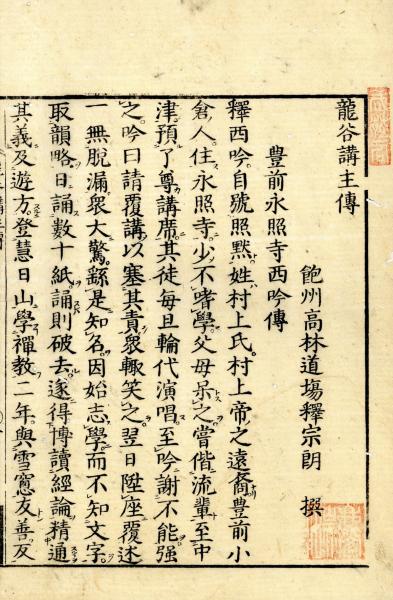 龍谷講主傳
飽州高林道場釋宗朗　撰
豊前永照寺西吟傳
釋西吟自號照默姓村上氏村上帝之遠裔豊前小
倉人住永照寺少不嗜學父母呆之嘗偕流輩至中
津預了尊講席其徒毎旦輪代演唱至吟謝不能强
之吟曰請覆講以塞其責衆輙笑之翌日陞座覆述
一無脱漏衆大驚繇是知名因始志學而不知文字
取韻略日誦數十紙誦則破去遂得博讀經論精通
其義及遊方登慧日山學禪教二年與雪窓友善友